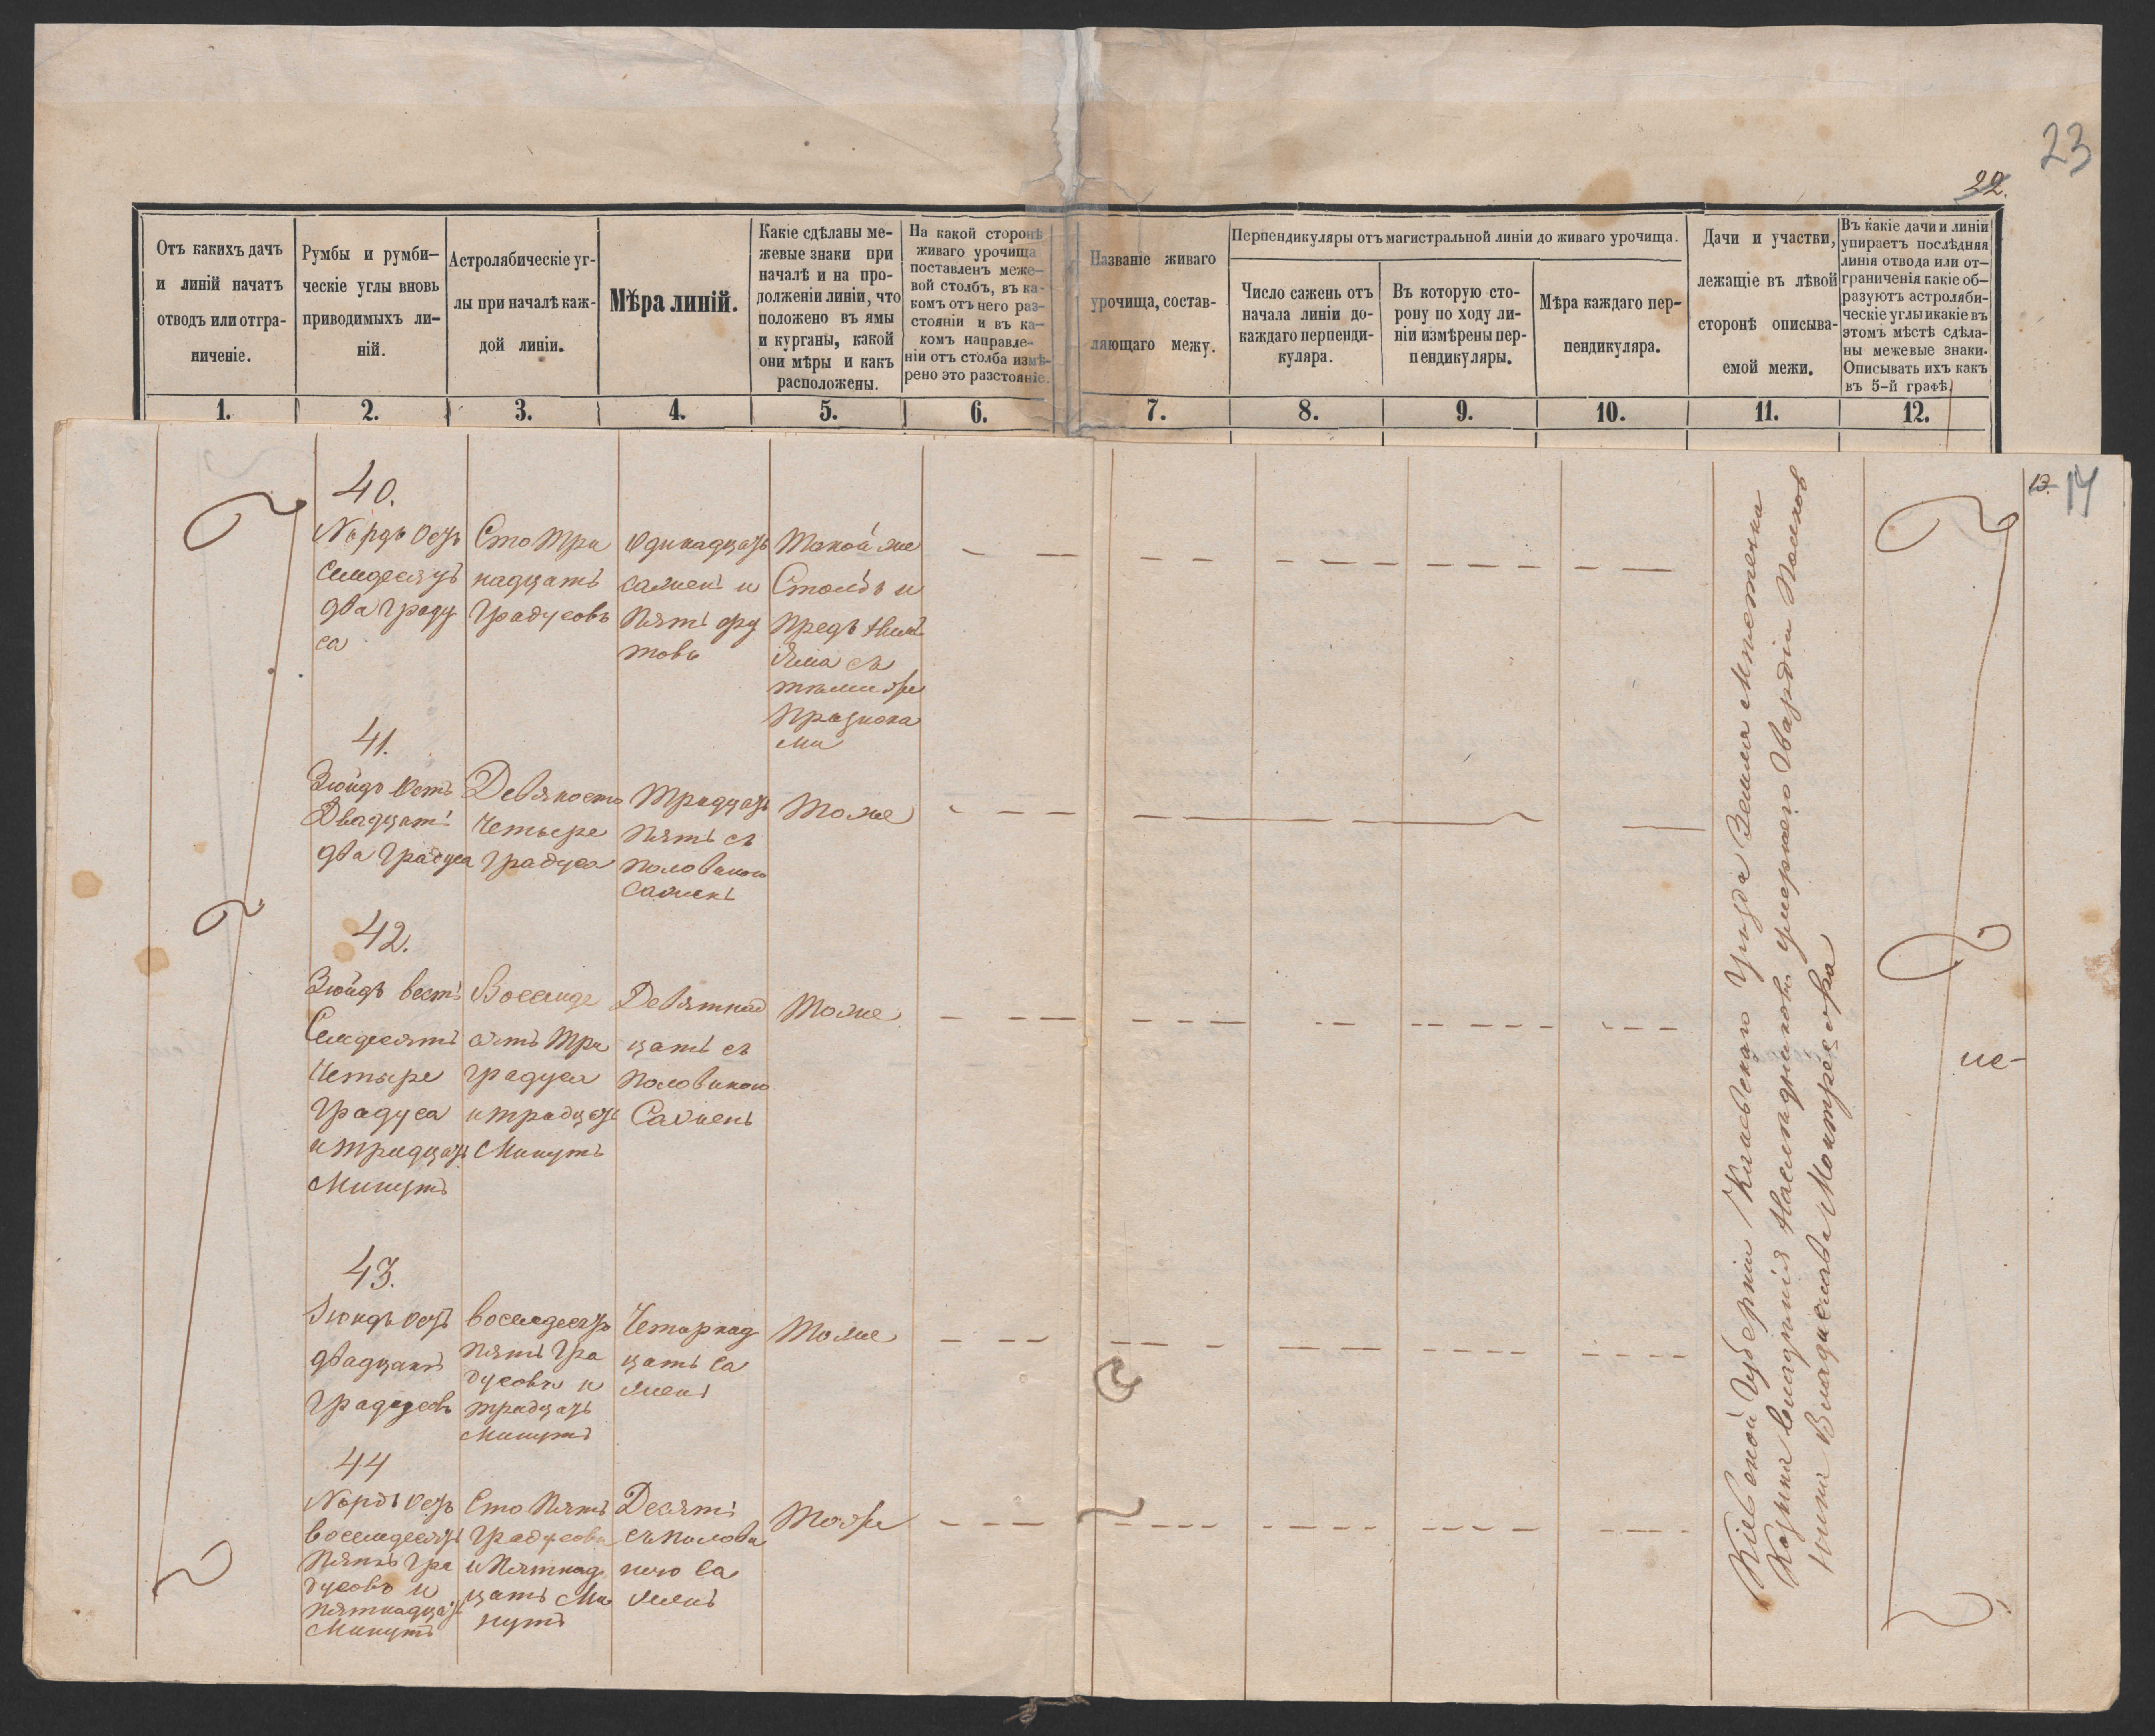 23
22.
Отъ какихъ дачъ
и линій начатъ
отводъ или отгра-
ниченіе.
Румбы и румби-
ческіе углы вновь
приводимыхъ ли-
ній.
Астролябическіе уг-
лы при началѣ каж-
дой линіи.
Мѣра линій.
Какіе сдѣланы ме-
жевые знаки при
началѣ и на про-
долженіи линіи, что
положено въ ямы
и курганы, какой
они мѣры и какъ
расположены.
На какой сторонѣ
живаго урочища
поставленъ меже-
вой столбъ, въ ка-
комъ отъ него раз-
стояніи и въ ка-
комъ направле-
ніи отъ столба измѣ-
рено это разстояніе.
Названіе живаго
урочища, состав-
ляющаго межу.
Перпендикуляры отъ магистральной линіи до живаго урочища.
Число сажень отъ
начала линіи до-
каждаго перпенди-
куляра.
Въ которую сто-
рону по ходу ли-
ніи измѣрены пер-
пендикуляры.
Мѣра каждаго пер-
пендикуляра.
Дачи и участки,
лежащіе въ лѣвой
сторонѣ описыва-
емой межи.
Въ какіе дачи и линіи
упираетъ послѣдняя
линія отвода или от-
граниченія какіе об-
разуютъ астроляби-
ческіе углы и какіе въ
этомъ мѣстѣ сдѣла-
ны межевые знаки.
Описывать ихъ какъ
въ 5-й графѣ.
1. 2. 3. 4. 5. 6. 7. 8. 9. 10. 11. 12.
13. 14
40.
Нордъ Остъ
Семдесятъ
два Граду
са
Сто Три
надцать
Градусовъ
Одинадцать
сажень и
Пять фу
товъ
Такой же
Столбъ и
Предъ нимъ
Яма съ
теми же
Признака
ми
41.
Зюйдъ Остъ
Двадцать
два Градуса
Девяносто
Четыре
Градуса
Тридцать
Пять съ
Половиною
Сажень
Тоже
42.
Зюйдъ Вестъ
Семдесятъ
Четыре
Градуса
и тридцать
Минутъ
Восемде
сятъ Три
Градуса
и тридцать
Минутъ
Девятнад
цать съ
Половиною
Сажень
Тоже
43.
Зюидъ Остъ
двадцать
Градусовъ
Восемдесятъ
Пять Гра
дусовъ и
тридцать
Минутъ
Четырнад
цать Са
жень
Тоже
44
Нордъ Остъ
восемдесятъ
Пять Гра
дусовъ и
Пятнадцать
Минутъ
Сто Пять
Градусовъ
и Пятнад
цать Ми
нутъ
Десять
съ Полови
ною Са
жень
Тоже
Кіевской Губерніи Каневскаго Уѣзда Земля Мѣстечка
Козина владѣнія Наслѣдниковъ умершаго Гвардіи Полков
ника Владислава Монтрезора